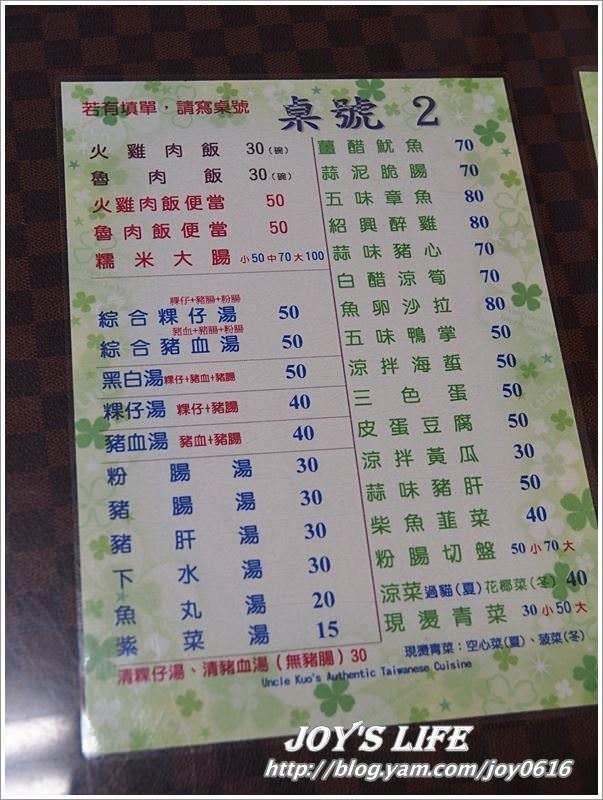 若有填單，請寫桌號
桌號 2
火雞肉飯 30(碗)
魯肉飯 30(碗)
火雞肉飯便當 50
魯肉飯便當 50
糯米大腸 小50中70大100
粿仔+豬腸+粉腸
綜合粿仔湯 50
豬血+豬腸+粉腸
綜合豬血湯 50
黑白湯 粿仔+豬血+豬腸 50
粿仔湯 粿仔+豬腸 40
豬血湯 豬血+豬腸 40
粉腸湯 30
豬腸湯 30
豬肝湯 30
下水湯 30
魚丸湯 20
紫菜湯 15
清粿仔湯、清豬血湯(無豬腸)30
薑醋魷魚 70
蒜泥脆腸 70
五味章魚 80
紹興醉雞 80
蒜味豬心 70
白醋涼筍 70
魚卵沙拉 80
五味鴨掌 50
涼拌海蜇 50
三色蛋 50
皮蛋豆腐 50
涼拌黃瓜 30
蒜味豬肝 50
柴魚韮菜 40
粉腸切盤 50小70大
涼菜過貓(夏)花椰菜(冬) 40
現燙青菜 30小50大
現燙青菜：空心菜(夏)、菠菜(冬)
Uncle Kuo's Authentic Taiwanese Cuisine
JOY'S LIFE
http://blog.yam.com/joy0616